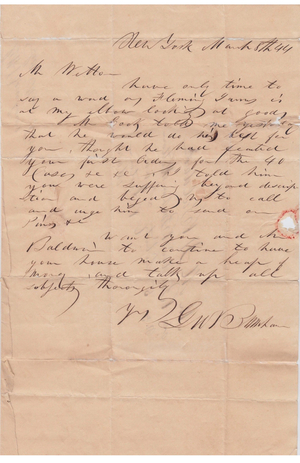 New York March 8th 44
Mr Witton
have only time to
say a word as Fleming James is
at my elbow looking at goods
told me yesterday
that he would do his best for
you, thought he had
your first orders for the 40
Cases &c &c I told him
you were suffering beyond descrip
tion and begged him to call
and urge him to send on
&c
Want you and Mr
Baldwin to continue to have
your house make a heap of
money, and talk up all
subjects thoroughly
Yrs G W Burnham